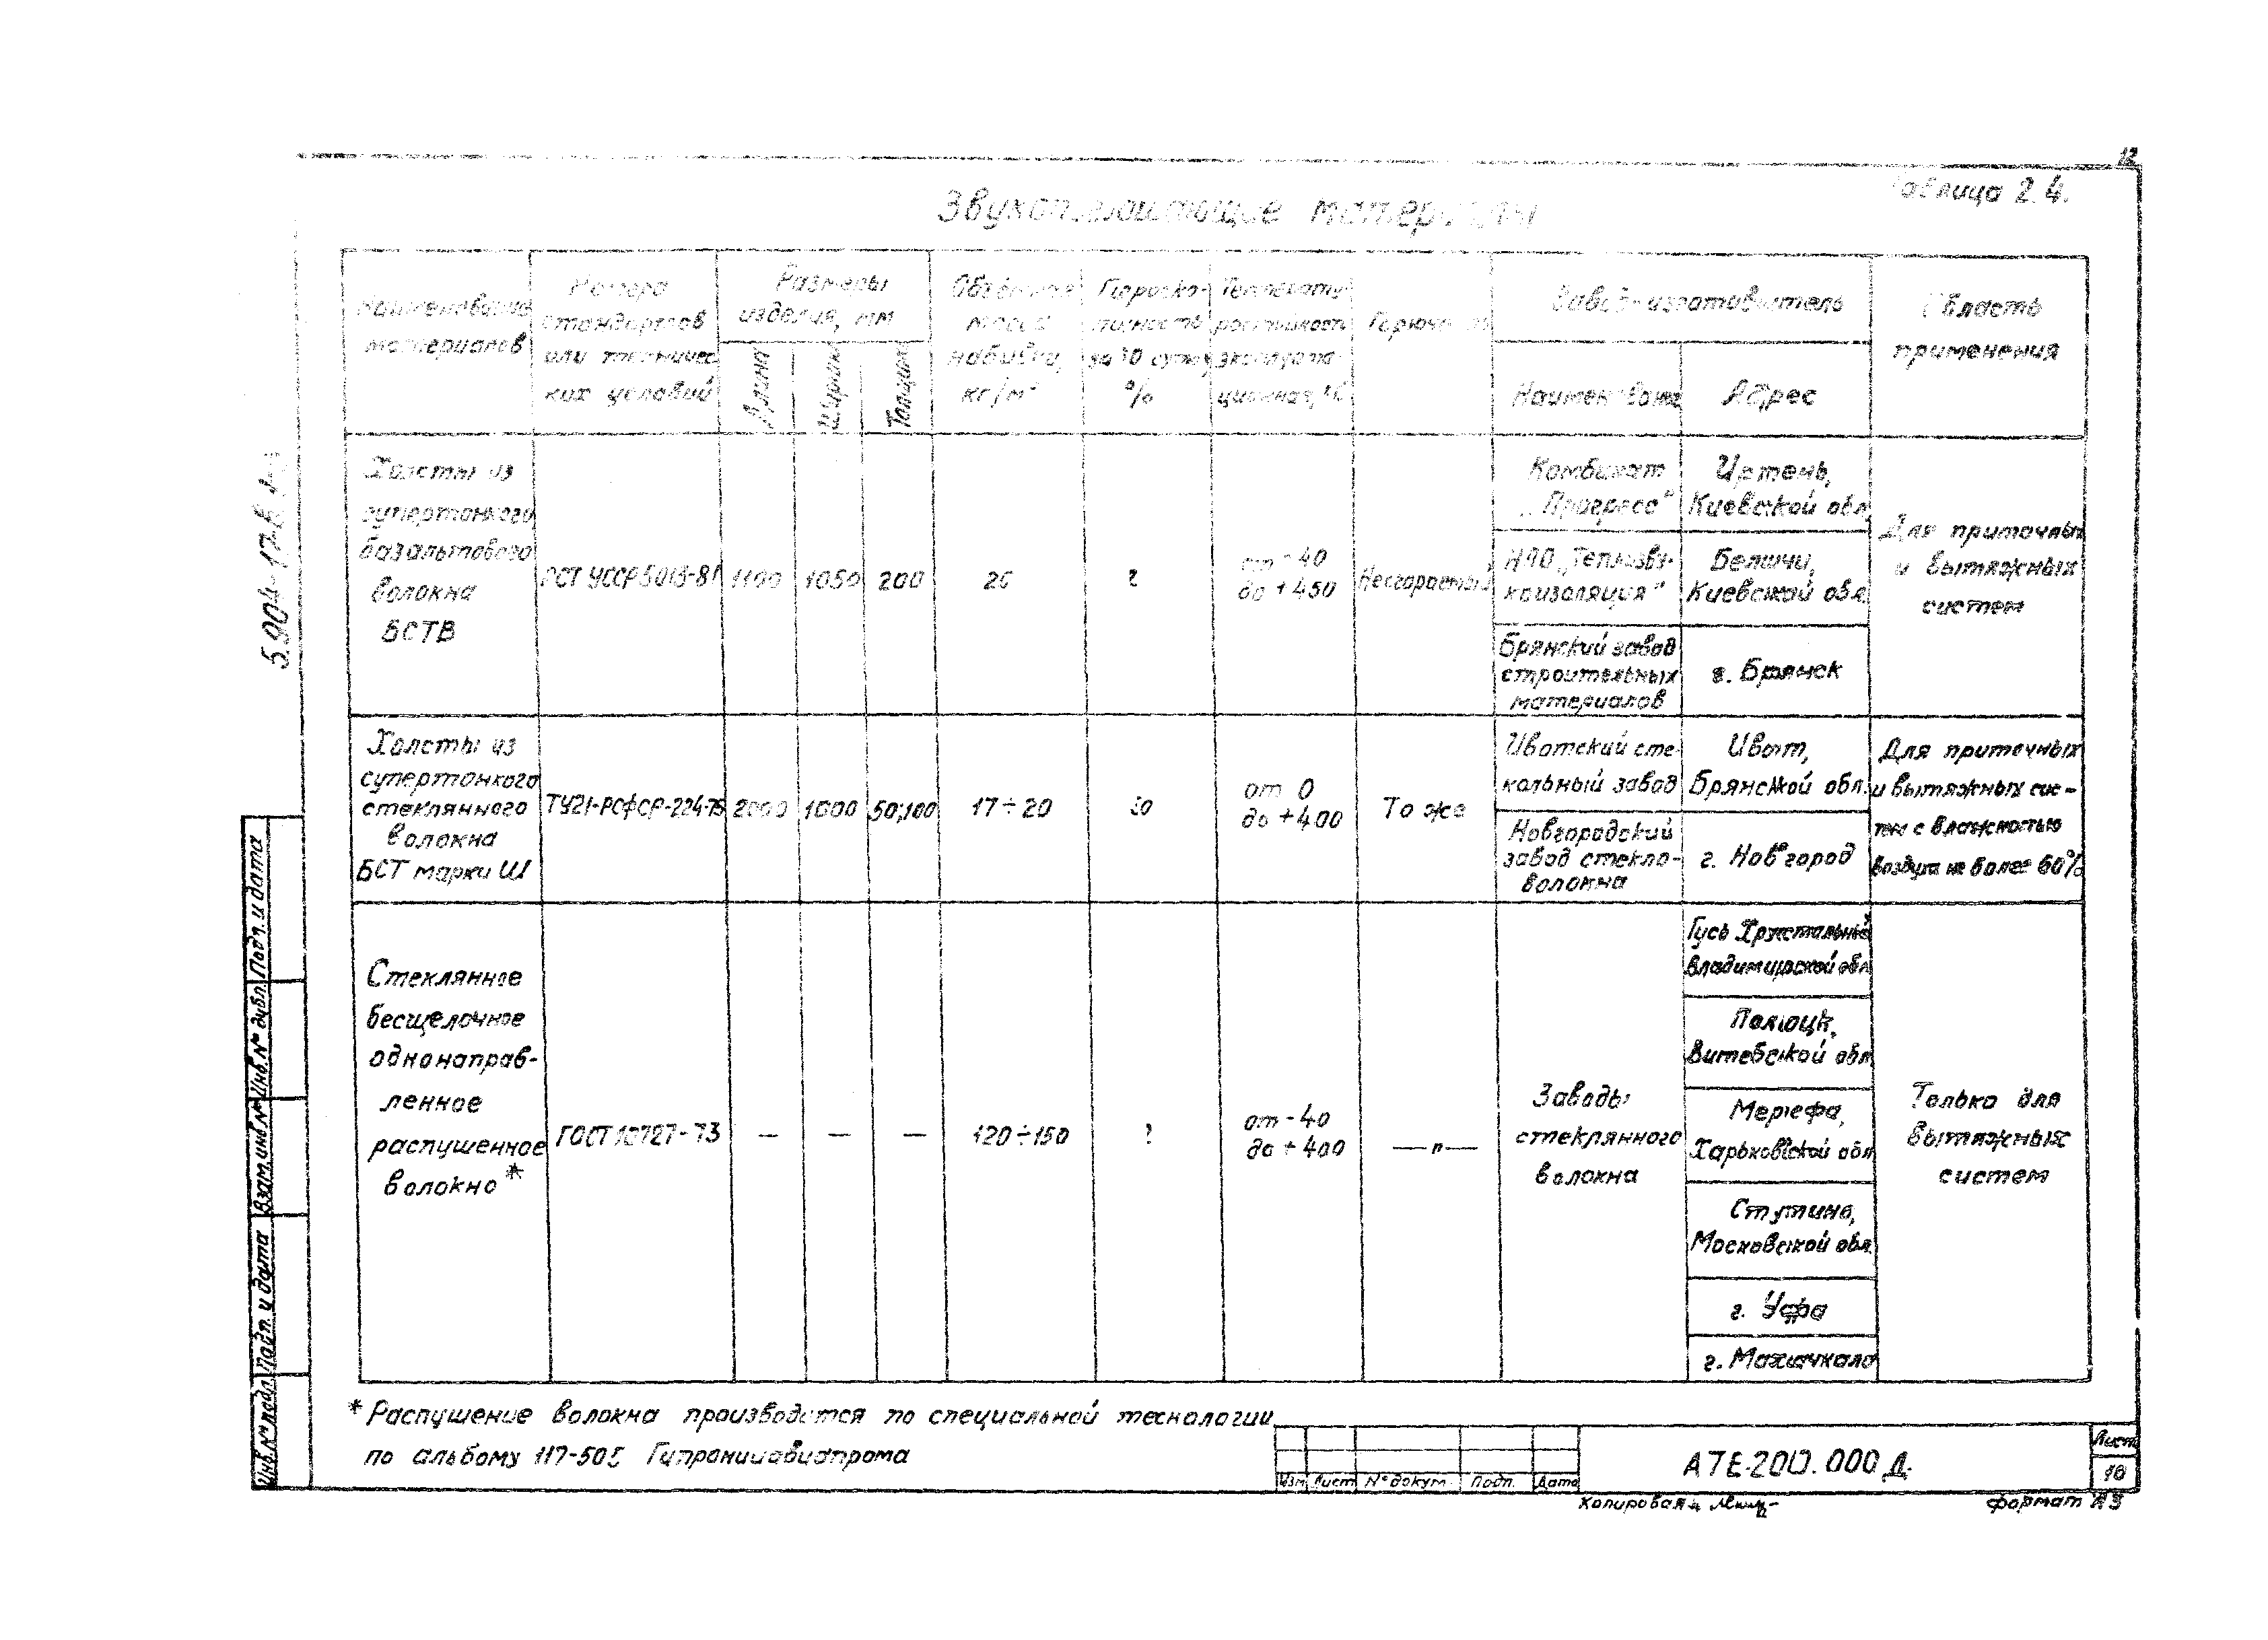 12
Таблица 2.4.
Звукопоглощающие материалы
Наименование материалов
Номера стандартов или технических условий
Размеры изделия, мм
Длина
Ширина
Толщина
Объёмная масса набивки, кг/м³
Гигроско-
пичность
%
Температу-
ростойкость
эксплуата-
ционная, °С
Горючесть
Завод-изготовитель
Наименование
Адрес
Область
применения
Холсты из
супертонкого
базальтового
волокна
БСТВ
РСТ УССР 5013-81
1100
1050
200
2
от -40
до +450
Несгораемый
Комбинат
„Прогресс"
Ирпень,
Киевской обл.
НПО „Теплозву-
коизоляция"
Беличи,
Киевской обл.
Брянский завод
строительных
материалов
г. Брянск
Для приточных
и вытяжных
систем
Холсты из
супертонкого
стеклянного
волокна
БСТ марки Ш
ТУ21-РСФСР-224-75
2000
1000
50;100
17÷20
от 0
до +400
То же
Ивотский сте-
кольный завод
Ивот,
Брянской обл.
Новгородский
завод стекло-
волокна
г. Новгород
Для приточных
и вытяжных сис-
тем с влажностью
воздуха не более 60%
Стеклянное
бесщелочное
однонаправ-
ленное
распушенное
волокно*
ГОСТ 10727-73
—
—
—
120÷150
2
от -40
до +400
—"—
Заводы
стеклянного
волокна
Гусь Хрустальный
Владимирской обл.
Полоцк,
Витебской обл.
Мерефа,
Харьковской обл.
Ступино,
Московской обл.
г. Уфа
г. Махачкала
Только для
вытяжных
систем
* Распушение волокна производится по специальной теснологии
по альбому 117-505 Гипрониавиапрома
Изм. Лист № докум. Подп. Дата
А7Е-200.000 Д.
Лист
10
Копировал
Формат А3
5.904-17.В
Подп. и дата
Инв.№ дубл.
Взам.инв.№
Подп. и дата
Инв.№ подл.